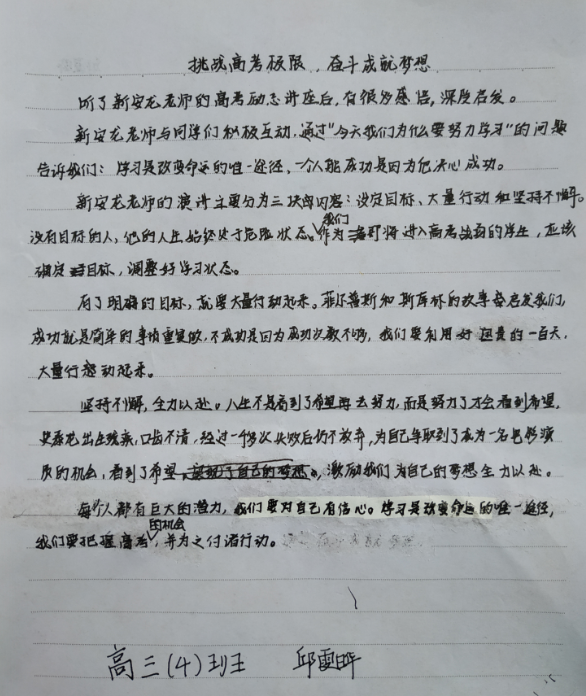 挑战高考极限，奋斗成就梦想
听了新安龙老师的高考励志讲座后，有很多感悟，深受启发。
新安龙老师与同学们积极互动，通过“今天我们为什么要努力学习”的问题
告诉我们：学习是改变命运的唯一途径，一个人能成功是因为他决心成功。
新安龙老师的演讲主要分为三块内容：设定目标、大量行动和坚持不懈。
没有目标的人，他的人生始终处于危险状态。作为我们即将进入高考战场的学生，应该
确定目标，调整好学习状态。
有了明确的目标，就要大量行动起来。菲尔普斯和斯库林的故事启发我们，
成功就是简单的事情重复做，不成功是因为成功次数不够，我们要利用好这最的一百天，
大量行动起来。
坚持不懈，全力以赴。人生不是看到了希望再去努力，而是努力了才会看到希望，
史泰龙出生残疾，口齿不清，经过一千多次失败后仍不放弃，为自己争取到了成为一名电影演
员的机会，看到了希望，激励我们为自己的梦想全力以赴。
每个人都有巨大的潜力，我们要对自己有信心。学习是改变命运的唯一途径，
我们要把握高考的机会，并为之付诸行动。
高三(4)班 邱雯晔